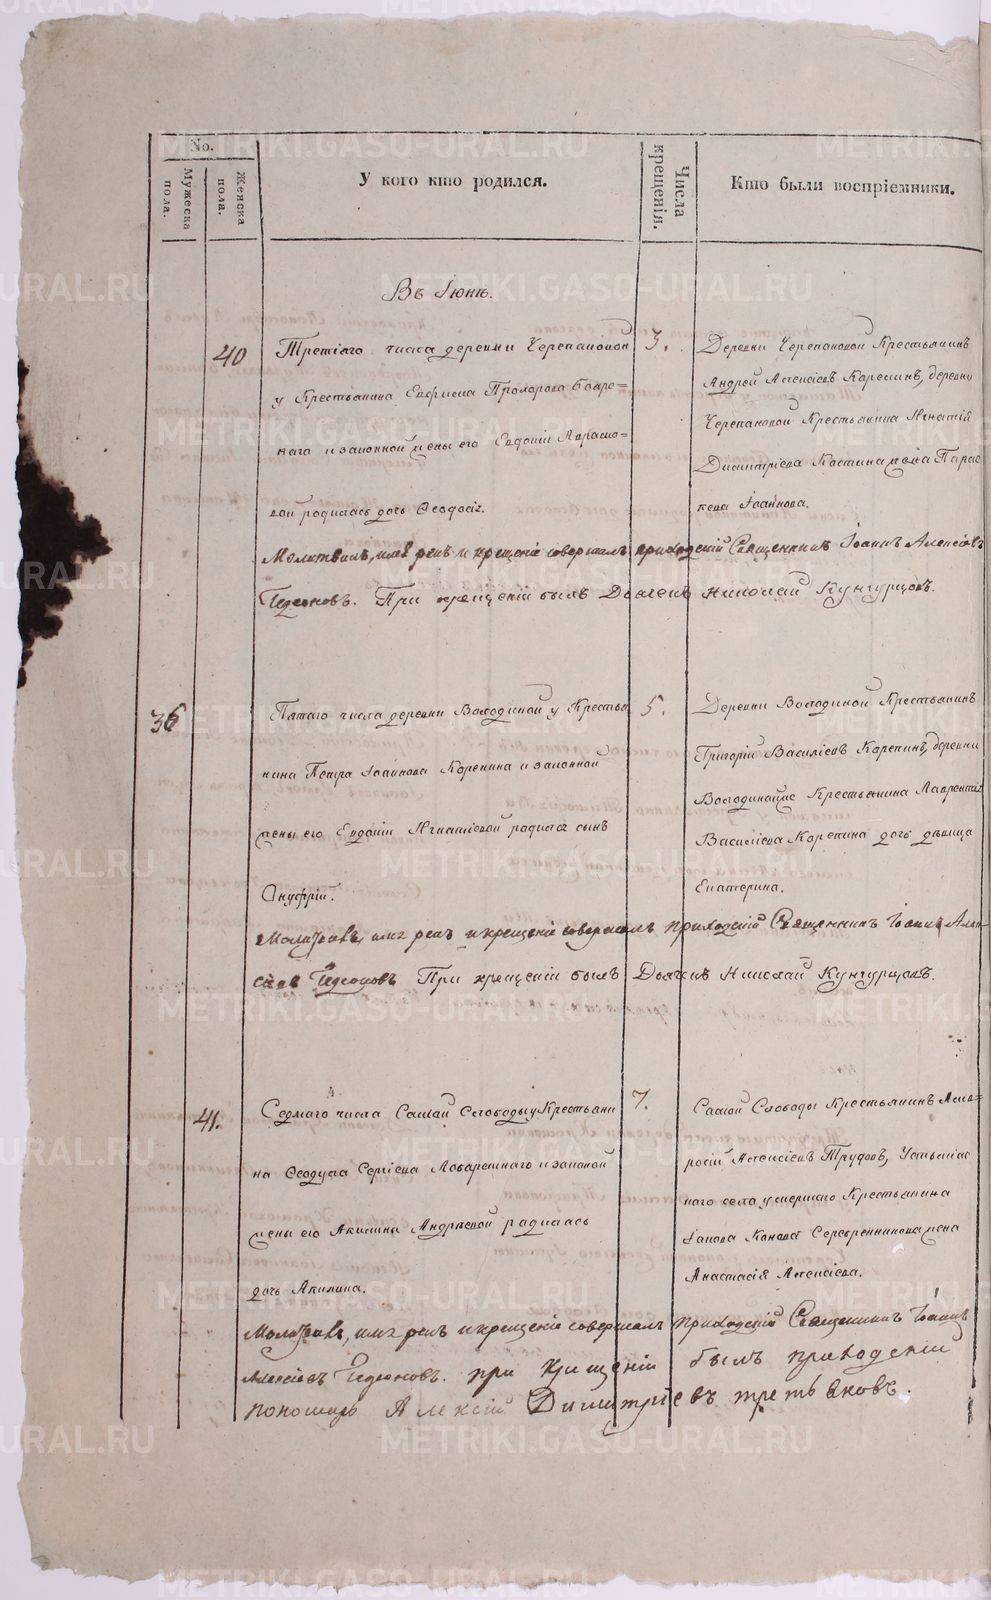 No.
Мужеска пола.
Женска пола.
У кого кто родился.
Числа крещенія.
Кто были воспріемники.
Въ Іюнѣ.
40
Третіяго числа деревни Черепановой
у Крестьянина Прохорова
наго и законной жены его Евдокіи
вой родилась дочь Ѳеодосія.
3.
Деревни Черепановой Крестьянинъ
Андрей Алексіевъ Карелинъ, деревни
Черепановой Крестьянина Игнатія
Димитріева Костина жена Парас
кева Іоаннова.
Молитвилъ, имя рекъ и крещеніе совершалъ приходскій Священникъ Іоаннъ Алексіевъ
Гедеоновъ. При крещеніи былъ Дьячекъ Николай Кунгурцовъ.
36
Пятаго числа деревни Володиной у Крестья
нина Петра Іоаннова Корепина и законной
жены его Евдокіи Игнатіевой родился сынъ
Онуфрій.
5.
Деревни Володиной Крестьянинъ
Григорій Василіевъ Корепинъ, деревни
Крестьянина Лаврентія
Василіева Корепина дочь дѣвица
Екатерина.
Молитвилъ, имя рекъ и крещеніе совершалъ приходскій Священникъ Іоаннъ Алек
сіевъ Гедеоновъ При крещеніи былъ Дьячекъ Николай Кунгурцовъ.
41.
Седмаго числа Самой Слободы у Крестьяни
на Ѳеодула Сергіева и законной
жены его Акилины Андреевой родилась
дочь Акилина.
7.
Самой Слободы Крестьянинъ
Алексіевъ Труфовъ,
наго села умершаго Крестьянина
Серебренникова жена
Анастасія Алексіева.
Молитвилъ, имя рекъ и крещеніе совершалъ приходскій Священникъ Іоаннъ
Алексіевъ Гедеоновъ. при крещеніи былъ приходскій
пономарь Алексій Димитріевъ третьяковъ.
METRIKI.GASO-URAL.RU